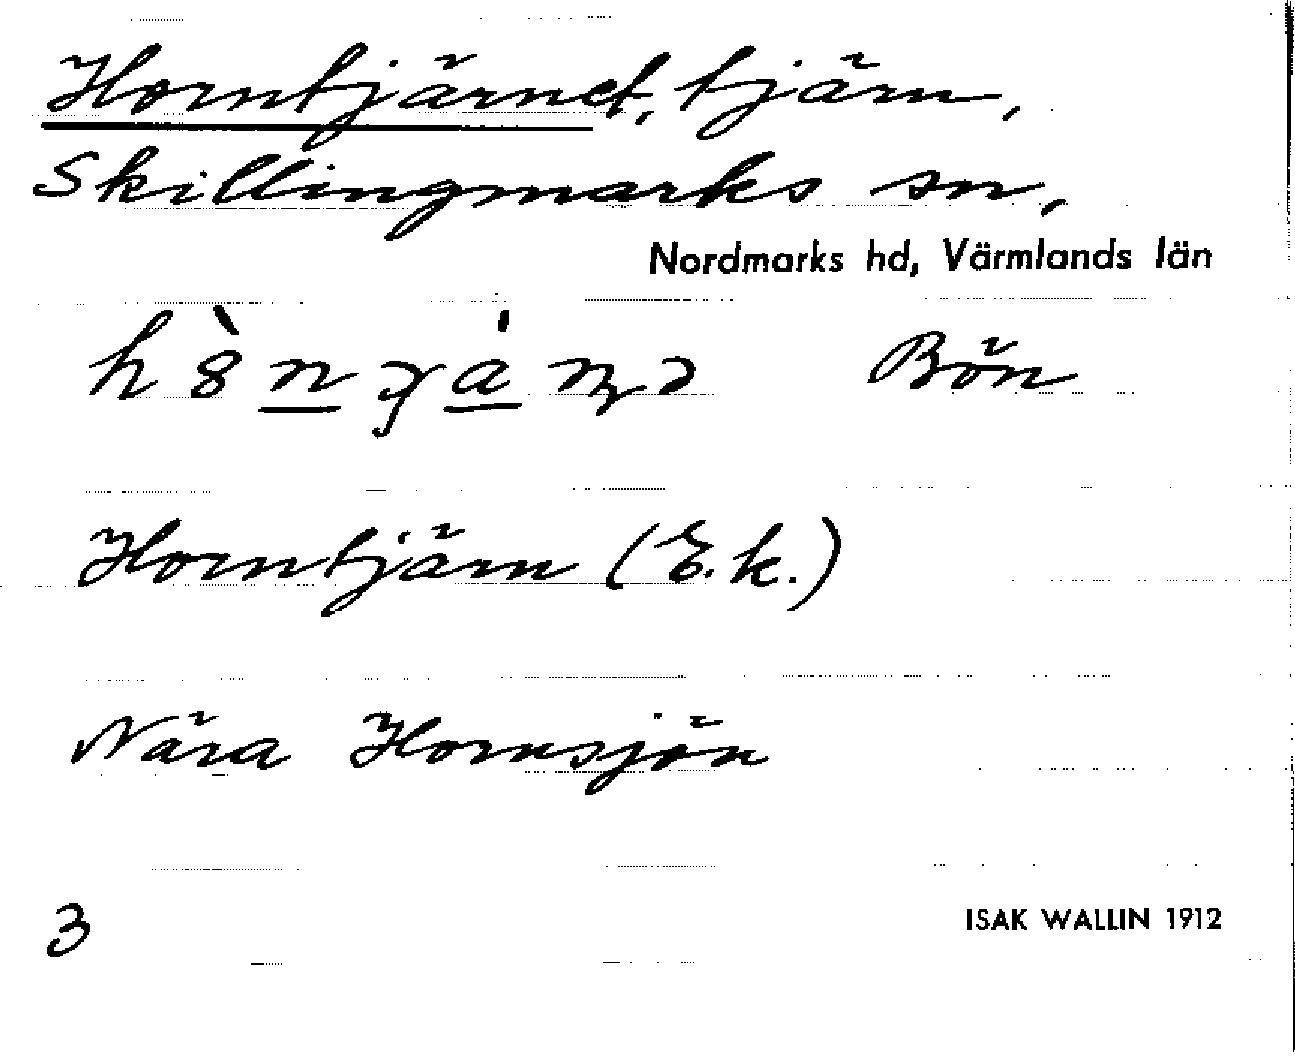 Horntjärnet, tjärn,
Skillingmarks sn,
Nordmarks hd, Värmlands län
Bön
Horntjärn (E.k.)
Nära Hornsjön
3
ISAK WALLIN 1912